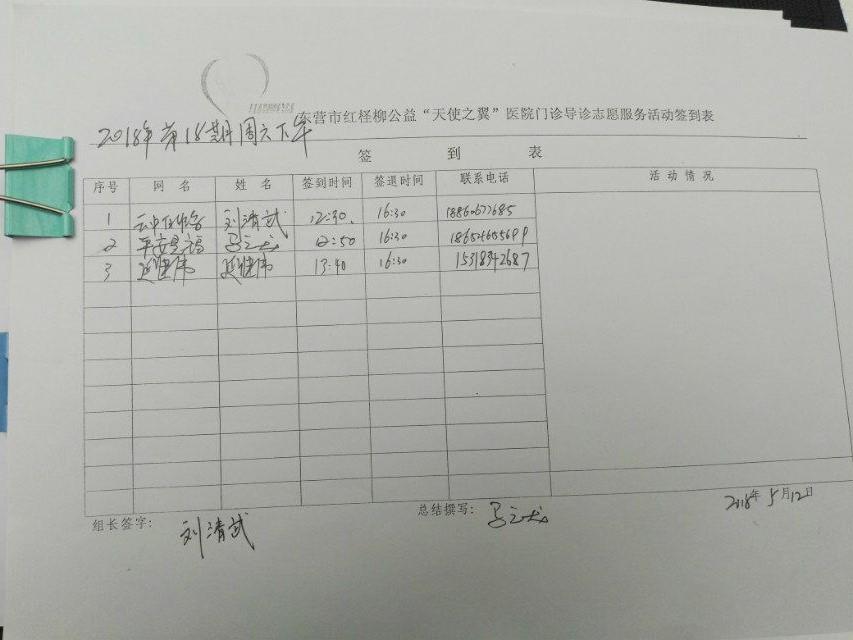 东营市红柽柳公益“天使之翼”医院门诊导诊志愿服务活动签到表
2018年第18期周六下午
签 到 表
序号 网 名 姓 名 签到时间 签退时间 联系电话 活动情况
1 刘清武 12:30. 16:30
2 平安是福 马立成 12:50 16:30
3 延继伟 延继伟 13:40 16:30 15318342687
组长签字: 刘清武 总结撰写: 马立成 2018年5月12日